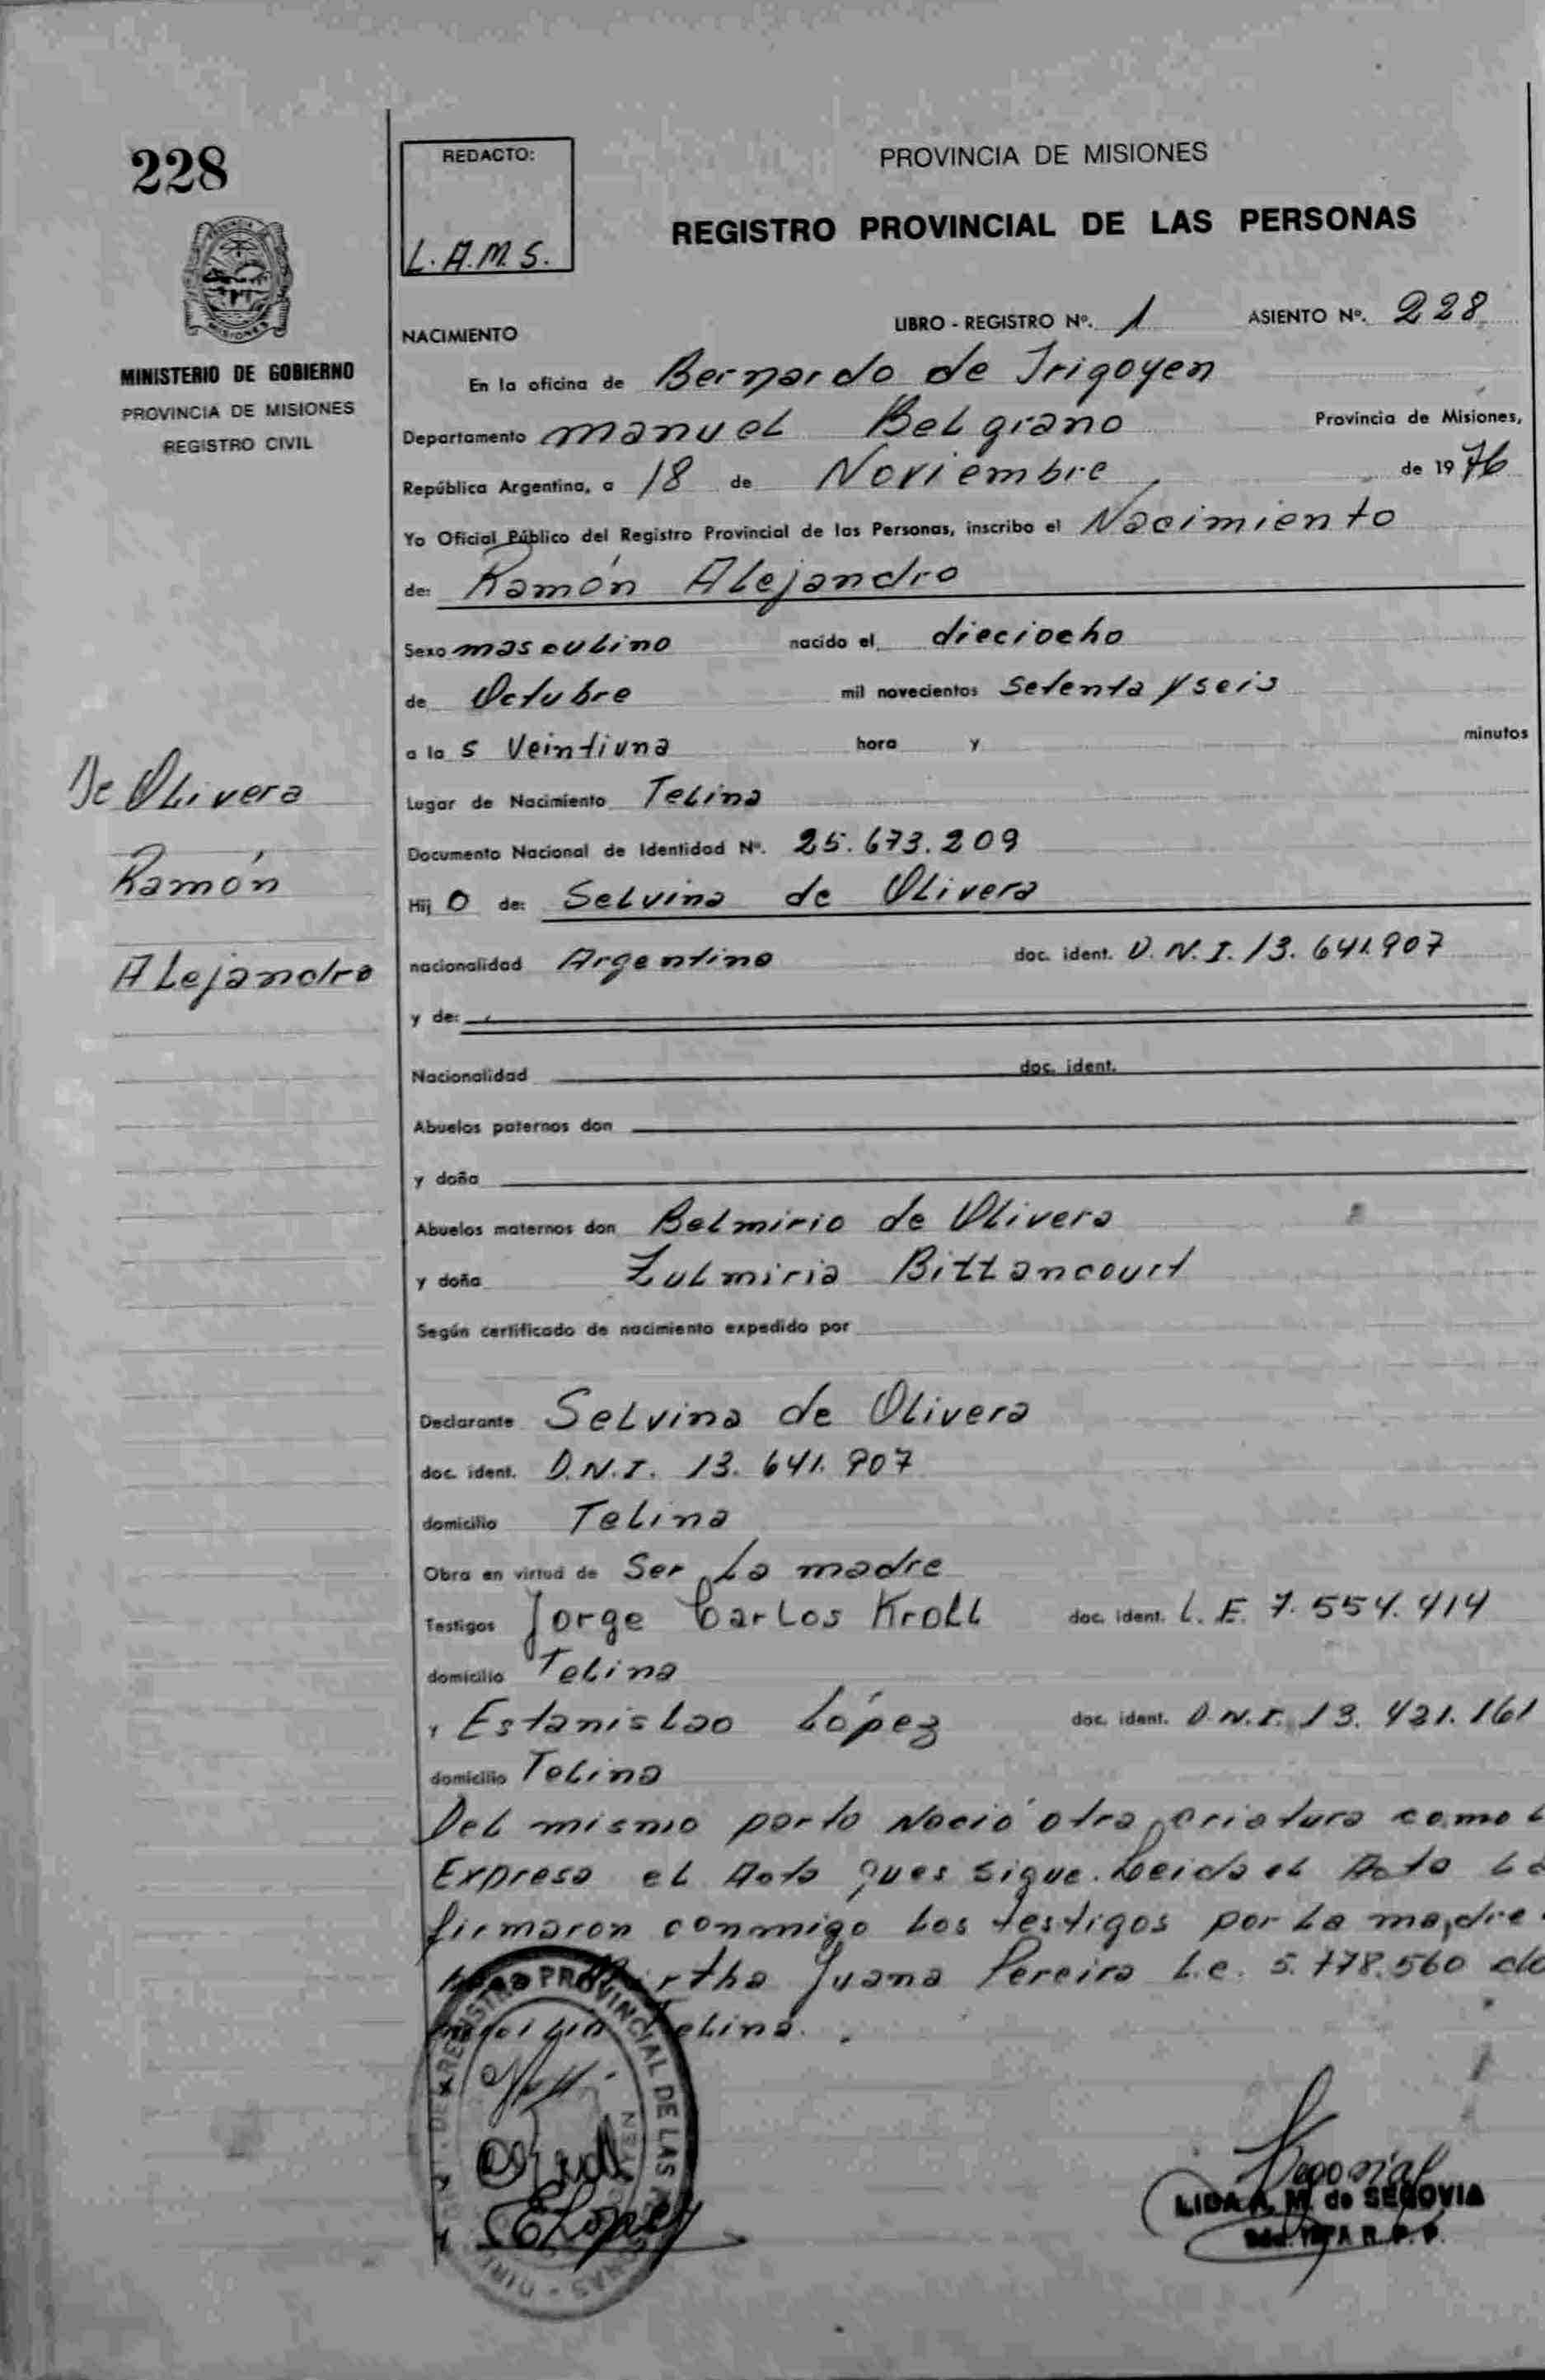 228
REDACTO:
L.A.M.S.
PROVINCIA DE MISIONES
REGISTRO PROVINCIAL DE LAS PERSONAS
MISIONES
MINISTERIO DE GOBIERNO
PROVINCIA DE MISIONES
REGISTRO CIVIL
LIBRO - REGISTRO Nº. 1 ASIENTO Nº. 228
NACIMIENTO
En la oficina de Bernardo de Irigoyen
Departamento Manuel Belgrano Provincia de Misiones,
República Argentina, a 18 de Noviembre de 1976
Yo Oficial Público del Registro Provincial de las Personas, inscribo el Nacimiento
de: Ramón Alejandro
Sexo masculino nacido el dieciocho
de Octubre mil novecientos Setenta y seis
a la s Veintiuna hora y minutos
De Olivera
Ramón
Alejandro
Lugar de Nacimiento Telina
Documento Nacional de Identidad Nº. 25.673.209
Hij o de: Selvina de Olivera
nacionalidad Argentina doc. ident. D.N.I. 13.641.907
y de:
Nacionalidad doc. ident.
Abuelos paternos don
y doña
Abuelos maternos don Belmirio de Olivera
y doña Zulmiria Bittancourt
Según certificado de nacimiento expedido por
Declarante Selvina de Olivera
doc. ident. D.N.I. 13.641.907
domicilio Telina
Obra en virtud de Ser La madre
Testigos Jorge Carlos Kroll doc. ident. L.E. 7.554.414
domicilio Telina
y Estanislao López doc. ident. D.N.I. 13.421.161
domicilio Telina
Del mismo parto Nació otra criatura como
Expresa el Acta ques sigue. Leida el Acta La
firmaron conmigo los testigos por La madre
Juana Pereira L.e. 5.778.560 do
Telina.
REGISTRO PROVINCIAL DE LAS
ELopez
Segovia
LIDA A. M. de SEGOVIA
R.P.P.